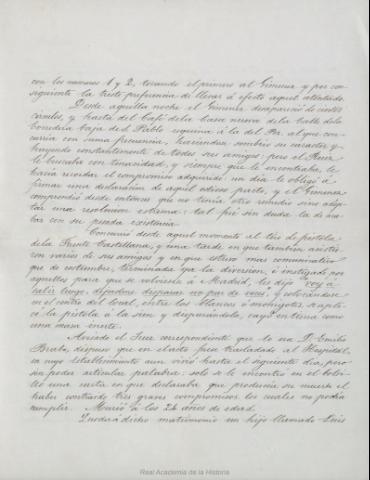 con los números 1 y 2, tocando el primero al Gimenez y por con-
siguiente la triste preferencia de llevar á efecto aquel atentado.
Desde aquella noche el Gimenez desapareció de ciertos
círculos, y hasta del Café de la casa nueva de la Calle de la
Corredera baja de S. Pablo esquina á la del Pez, al que con-
curría con suma frecuencia, haciéndose sombrío su caracter y
huyendo constantemente de todos sus amigos; pero el
le buscaba con tenacidad, y siempre que le encontraba, le
hacía recordar el compromiso adquirido: un dia le obligó á
firmar una declaración de aquel odioso pacto, y el Gimenez
comprendió desde entonces que no tenía otro remedio sino adop-
tar una resolucion extrema: tal fué sin duda la de aca-
bar con su pesada existencia
Concurrió desde aquel momento al tiro de pistola,
de la Fuente Castellana, y una tarde en que tambien asistie-
ron varios de sus amigos y en que estuvo mas comunicativo
que de costumbre, terminada que la diversion, é instigado por
aquellos para que se volviera á Madrid, les dijo voy á
salir luego, dejadme disparar un par de veces, y colocandose
en el centro del local, entre los blancos y monigotes, se apli-
có la pistola á la sien y disparándola, cayó en tierra como
una masa inerte.
Avisado el Juez correspondiente que lo era D. Emilio
Bravo, dispuso que en el acto fuera trasladado al Hospital,
en cuyo establecimiento aun vivió hasta el siguiente dia, pero
sin poder articular palabra: solo se le encontró en el bolsi-
llo una carta en que declaraba que producía su muerte el
haber contraido tres graves compromisos los cuales no podía
cumplir. Murió á los 24 años de edad.
Quedó á dicho matrimonio un hijo llamado Luis
Real Academia de la Historia